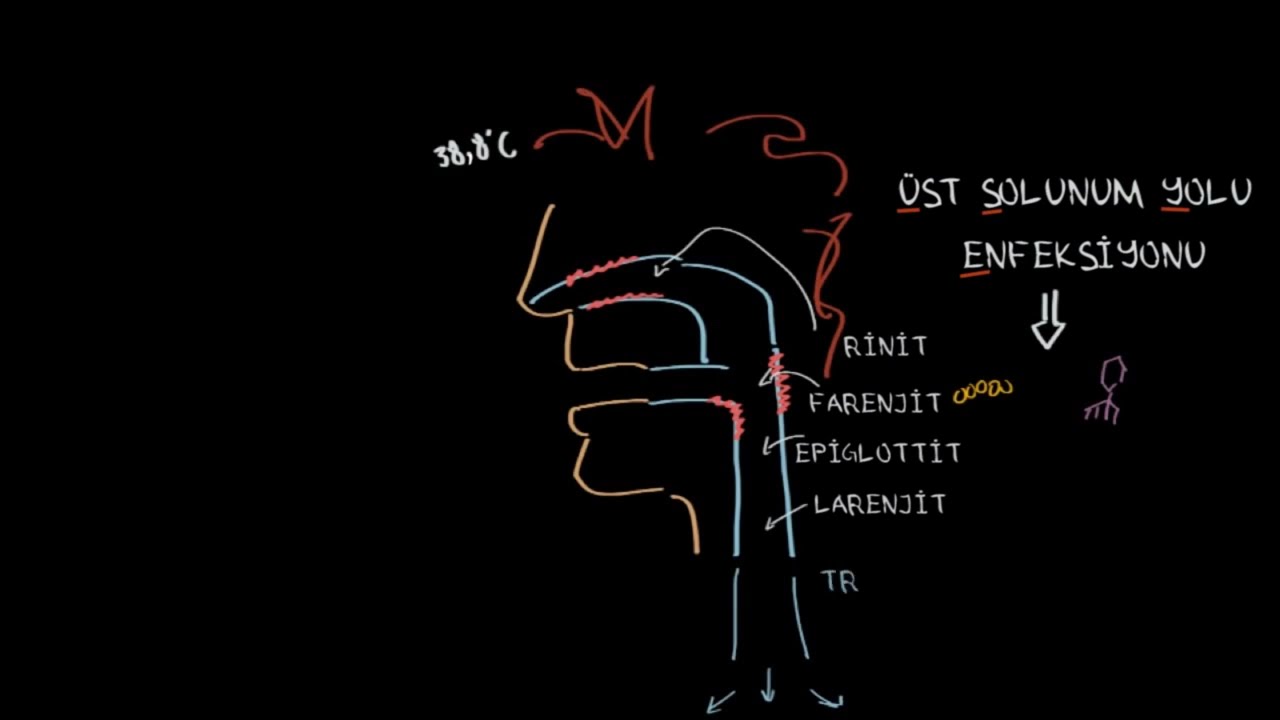 38,8°C
ÜST SOLUNUM YOLU
ENFEKSİYONU
RİNİT
FARENJİT
EPİGLOTTİT
LARENJİT
TR